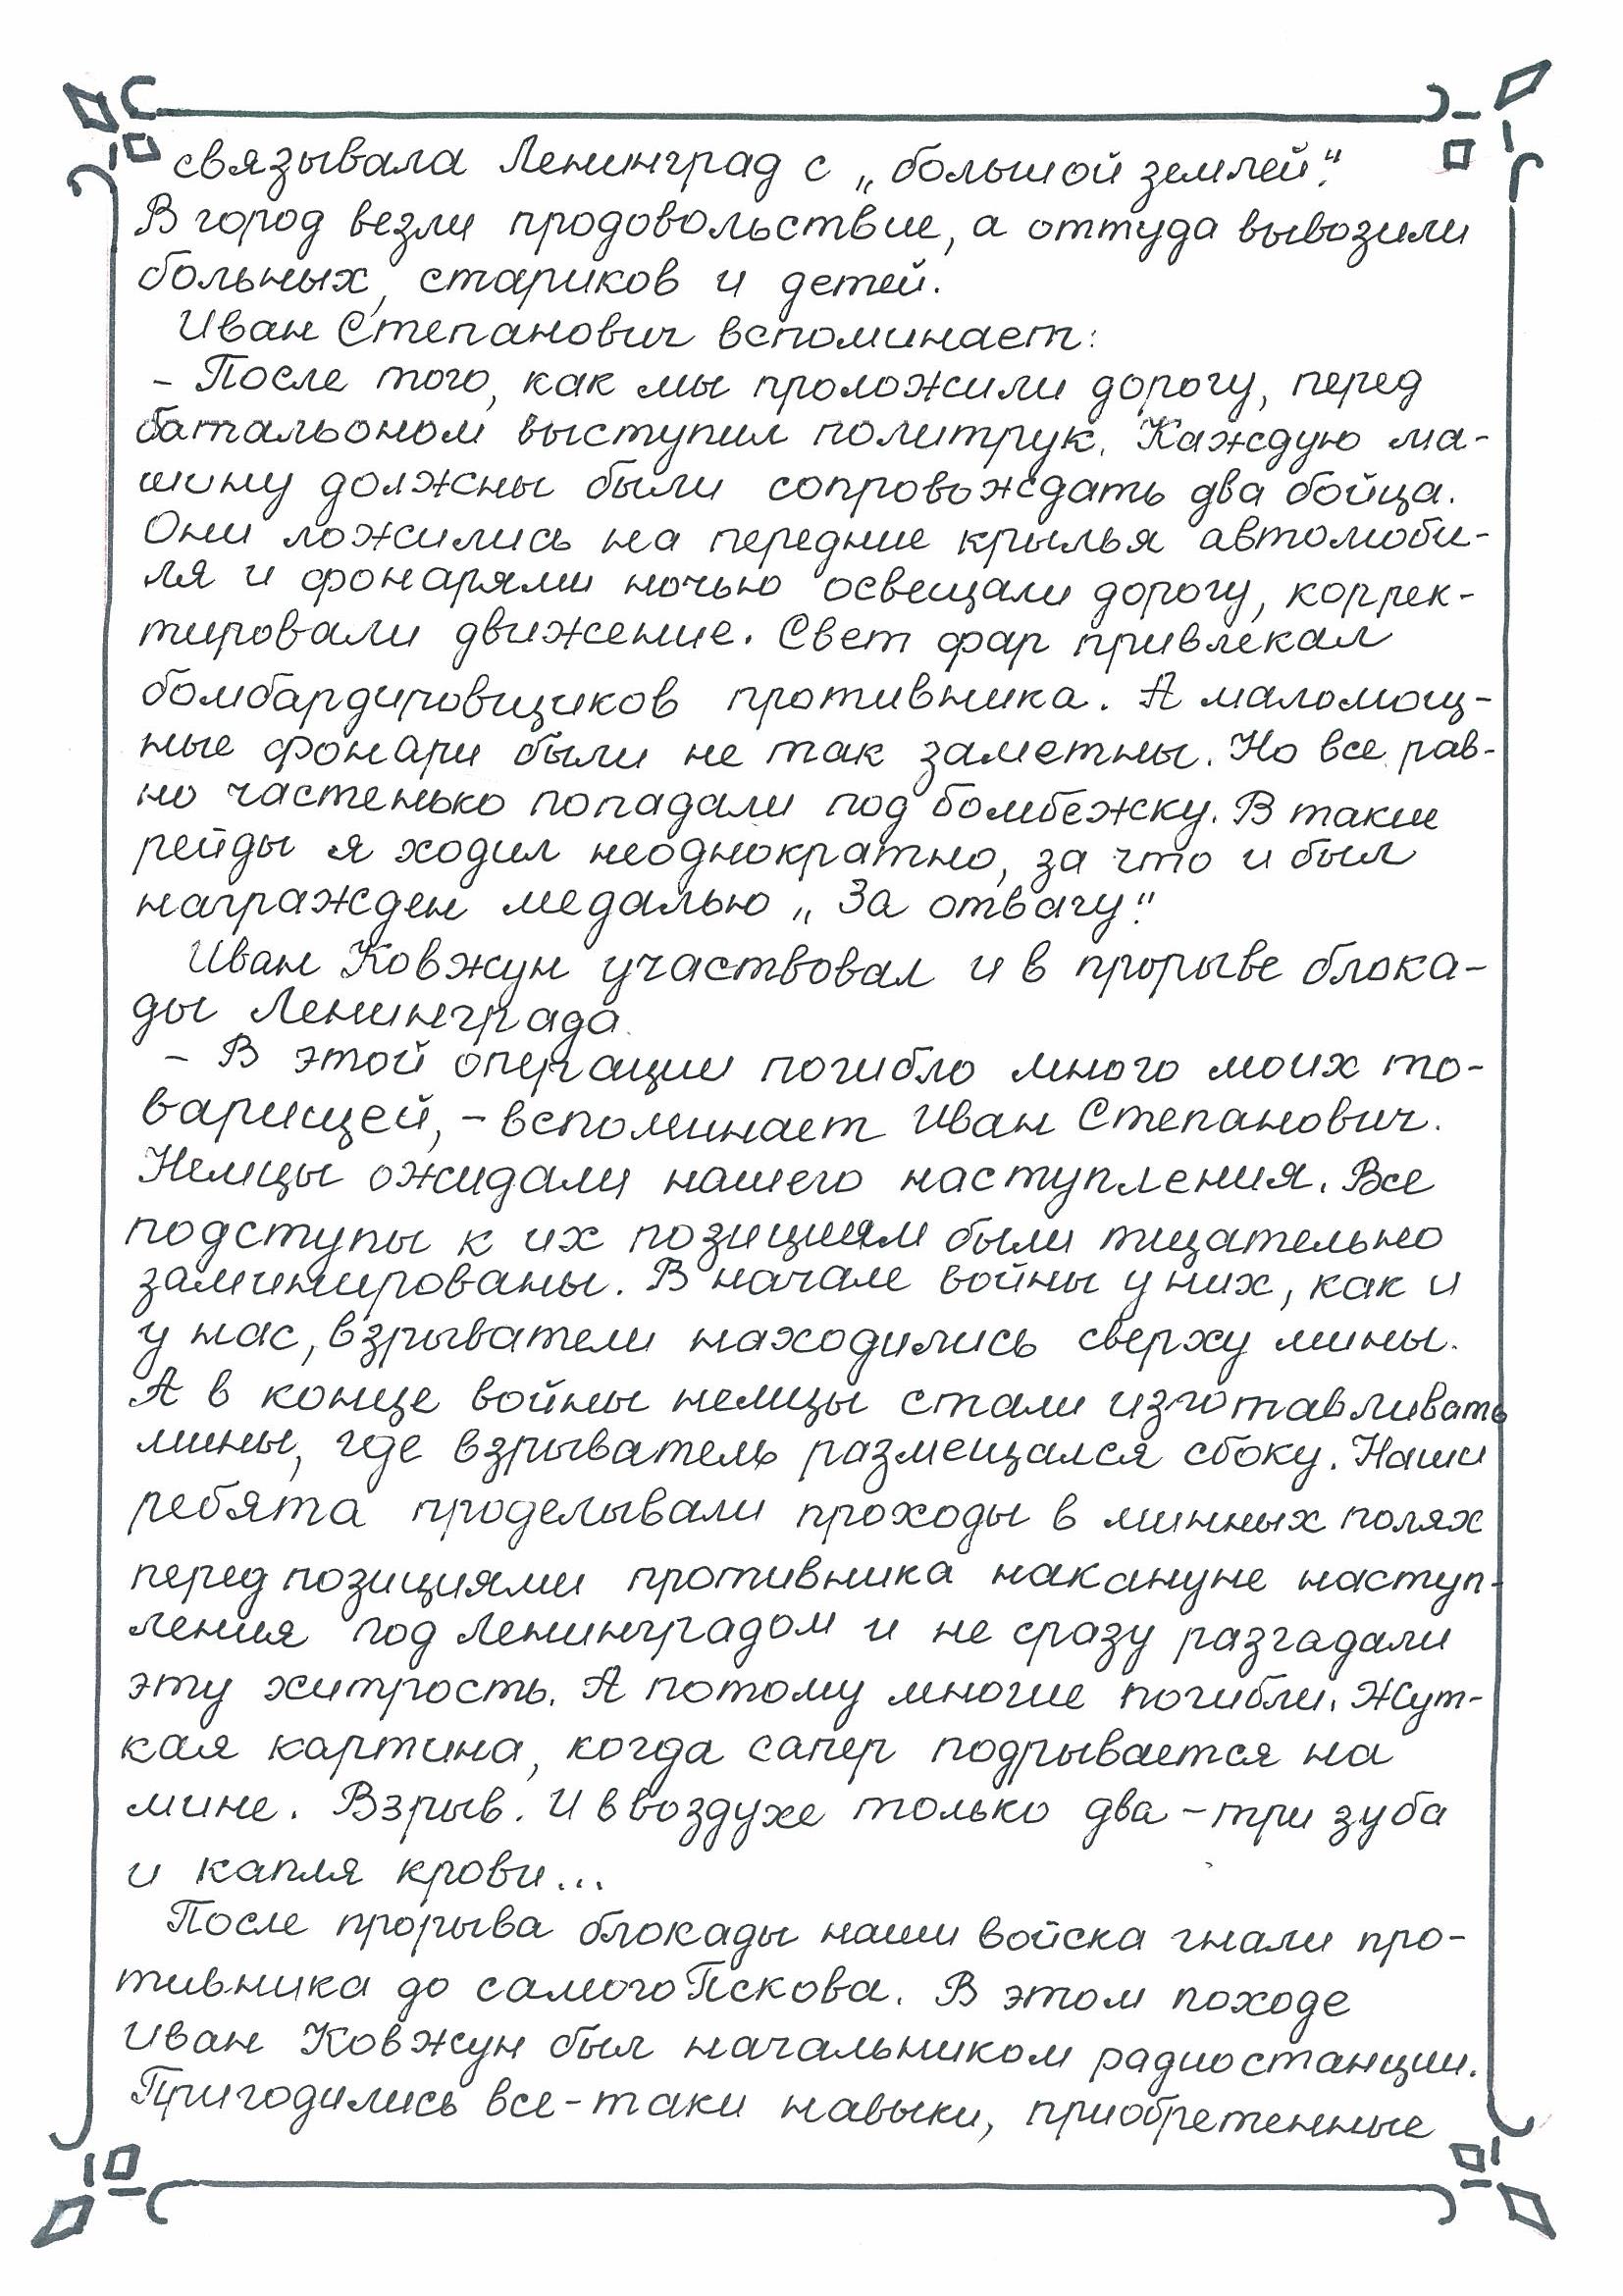 связывала Ленинград с „большой землей“.
В город везли продовольствие, а оттуда вывозили
больных, стариков и детей.
Иван Степанович вспоминает:
– После того, как мы проложили дорогу, перед
батальоном выступил политрук. Каждую ма-
шину должны были сопровождать два бойца.
Они ложились на передние крылья автомоби-
ля и фонарями ночью освещали дорогу, коррек-
тировали движение. Свет фар привлекал
бомбардировщиков противника. А маломощ-
ные фонари были не так заметны. Но все рав-
но частенько попадали под бомбежку. В такие
рейды я ходил неоднократно, за что и был
награжден медалью „За отвагу“.
Иван Ковжун участвовал и в прорыве блока-
ды Ленинграда.
– В этой операции погибло много моих то-
варищей, – вспоминает Иван Степанович.
Немцы ожидали нашего наступления. Все
подступы к их позициям были тщательно
заминированы. В начале войны у них, как и
у нас, взрыватели находились сверху мины.
А в конце войны немцы стали изготавливать
мины, где взрыватель размещался сбоку. Наши
ребята проделывали проходы в минных полях
перед позициями противника накануне наступ-
ления под Ленинградом и не сразу разгадали
эту хитрость. А потому многие погибли. Жут-
кая картина, когда сапер подрывается на
мине. Взрыв. И в воздухе только два – три зуба
и капля крови...
После прорыва блокады наши войска гнали про-
тивника до самого Пскова. В этом походе
Иван Ковжун был начальником радиостанции.
Пригодились все-таки навыки, приобретенные